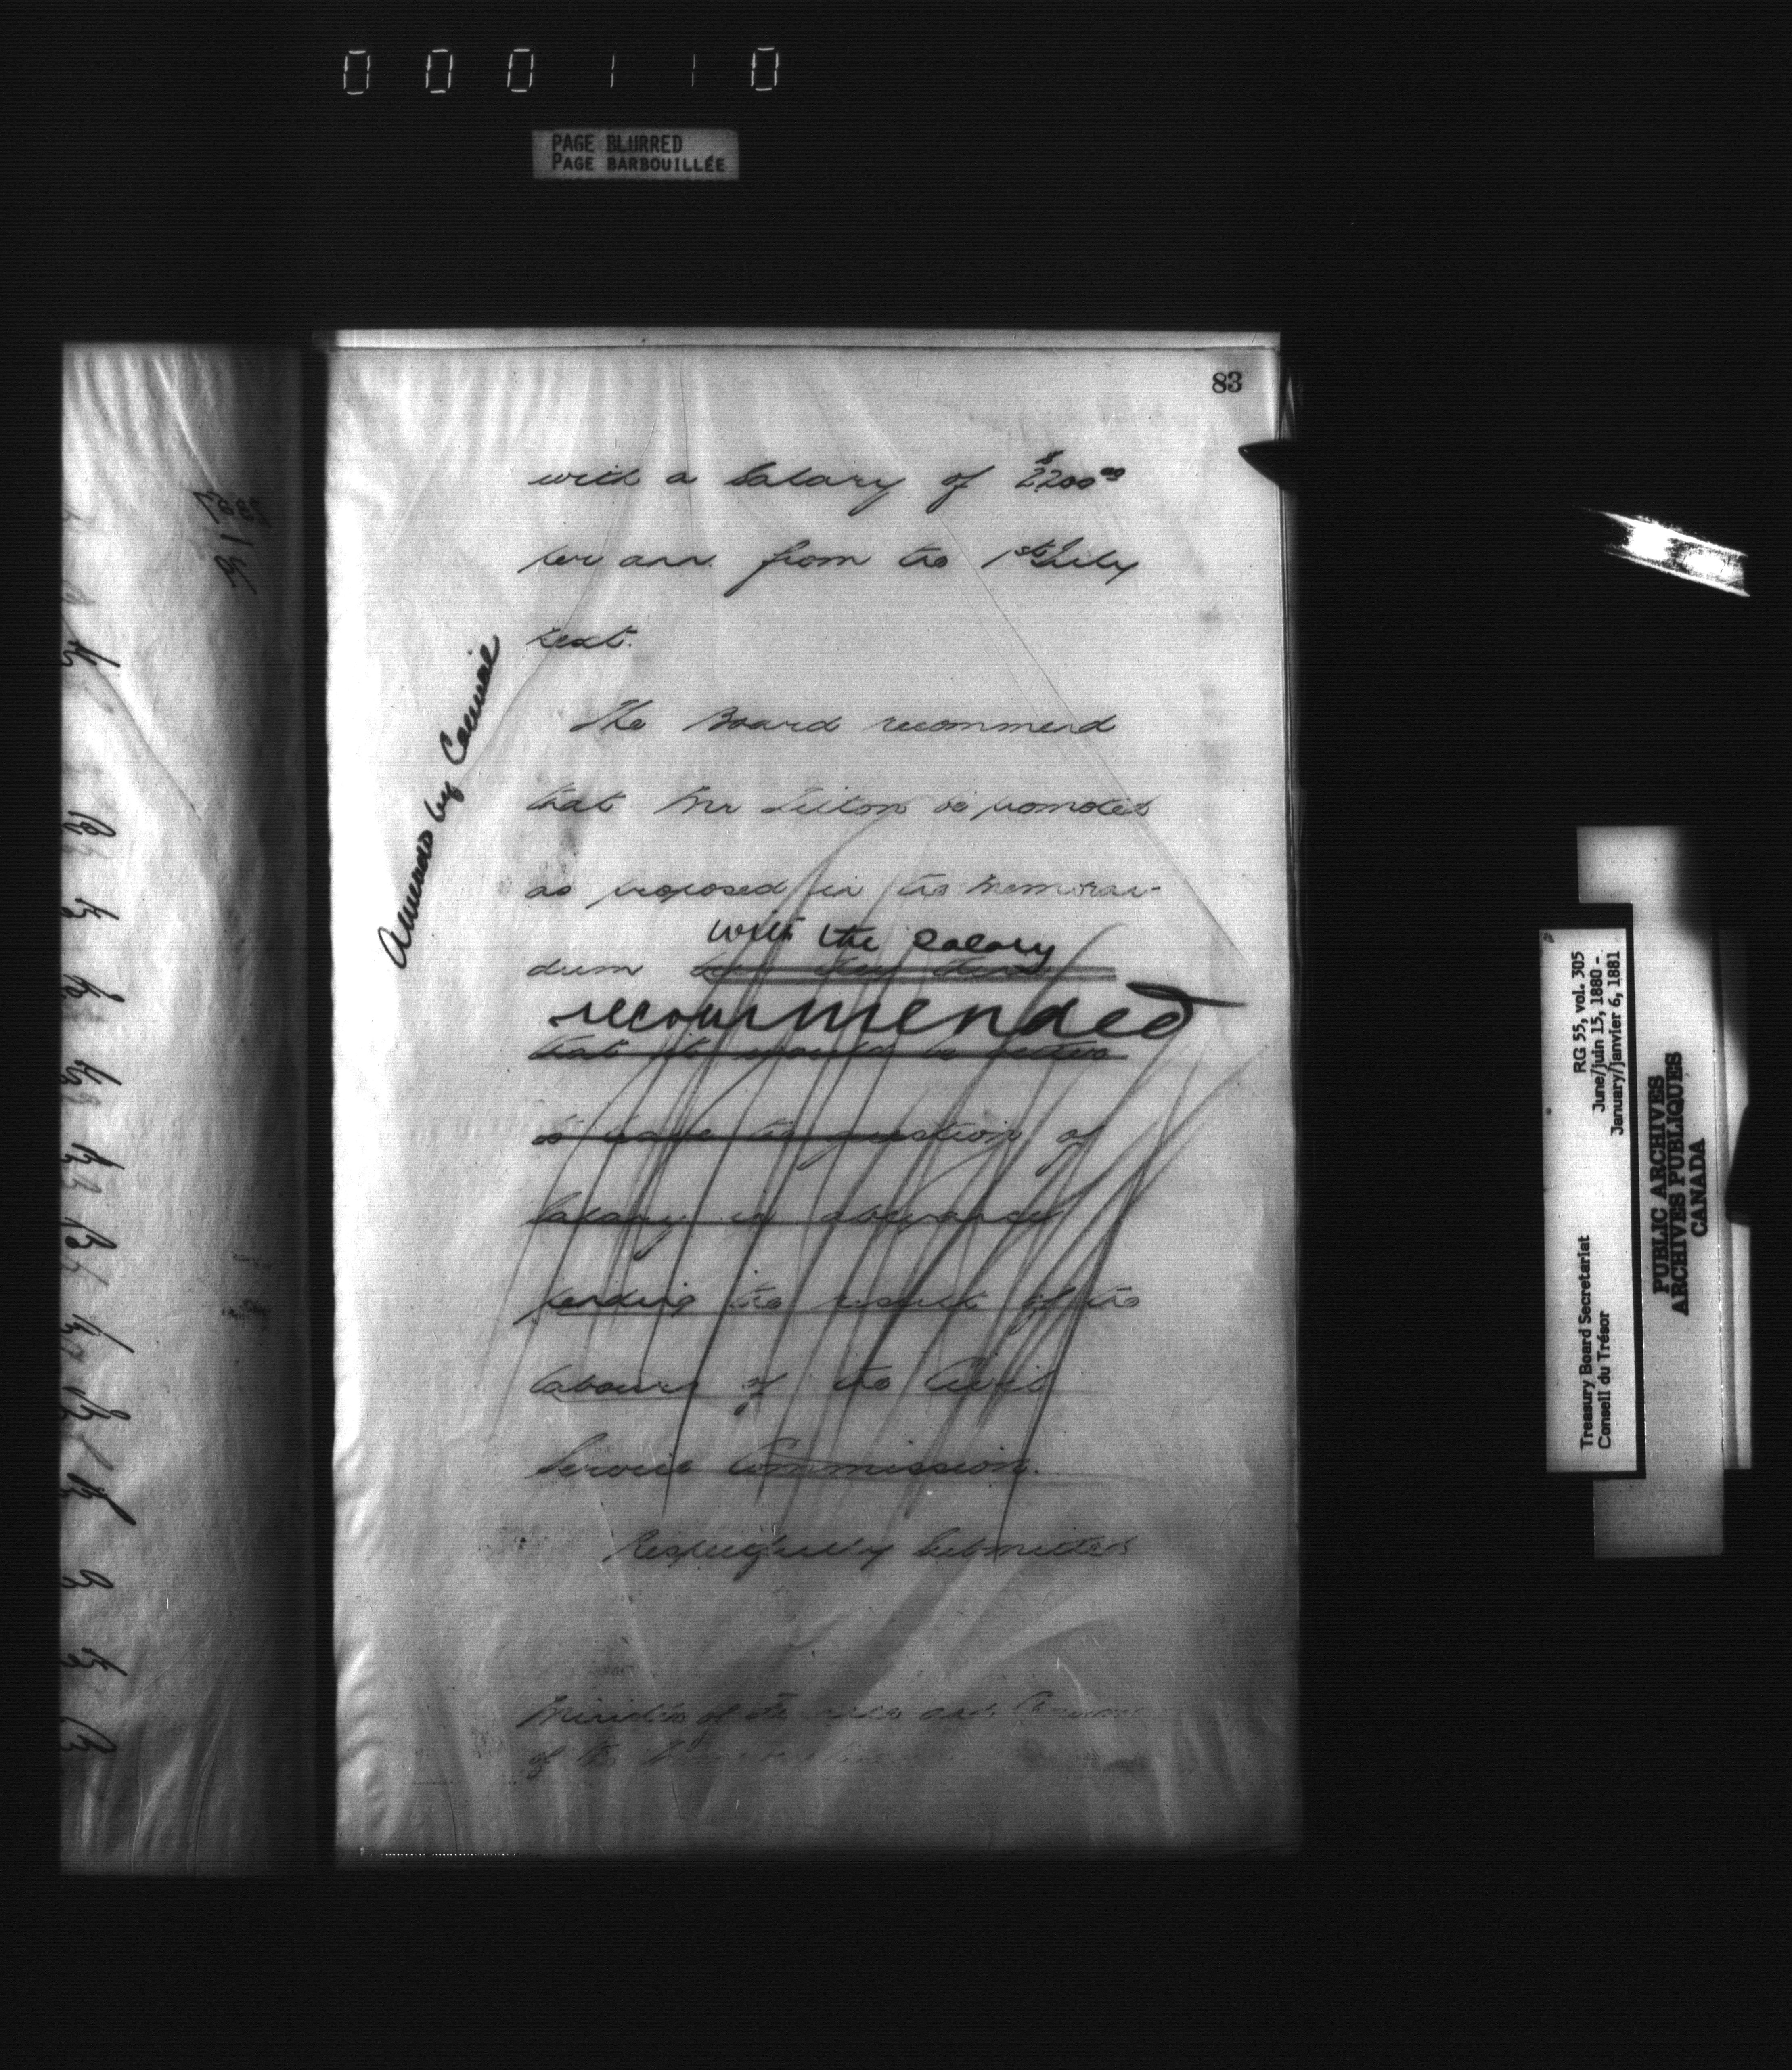 000110
PAGE BLURRED
PAGE BARBOUILLÉE
83
with a Salary of $2200 00
per ann. from the 1st July
next.
Amended by Council
The Board recommend
that Mr Tilton be promoted
as proposed in the Memoran-
with the salary
dum but they
recommended
that it would be better
to leave the question of
Salary in abeyance
pending the result of the
labours of the Civil
Service Commission.
Respectfully Submitted
Minister of Finance and
of the
RG 55, vol. 305
June/juin 15, 1880 -
January/janvier 6, 1881
Treasury Board Secretariat
Conseil du Trésor
PUBLIC ARCHIVES
ARCHIVES PUBLIQUES
CANADA